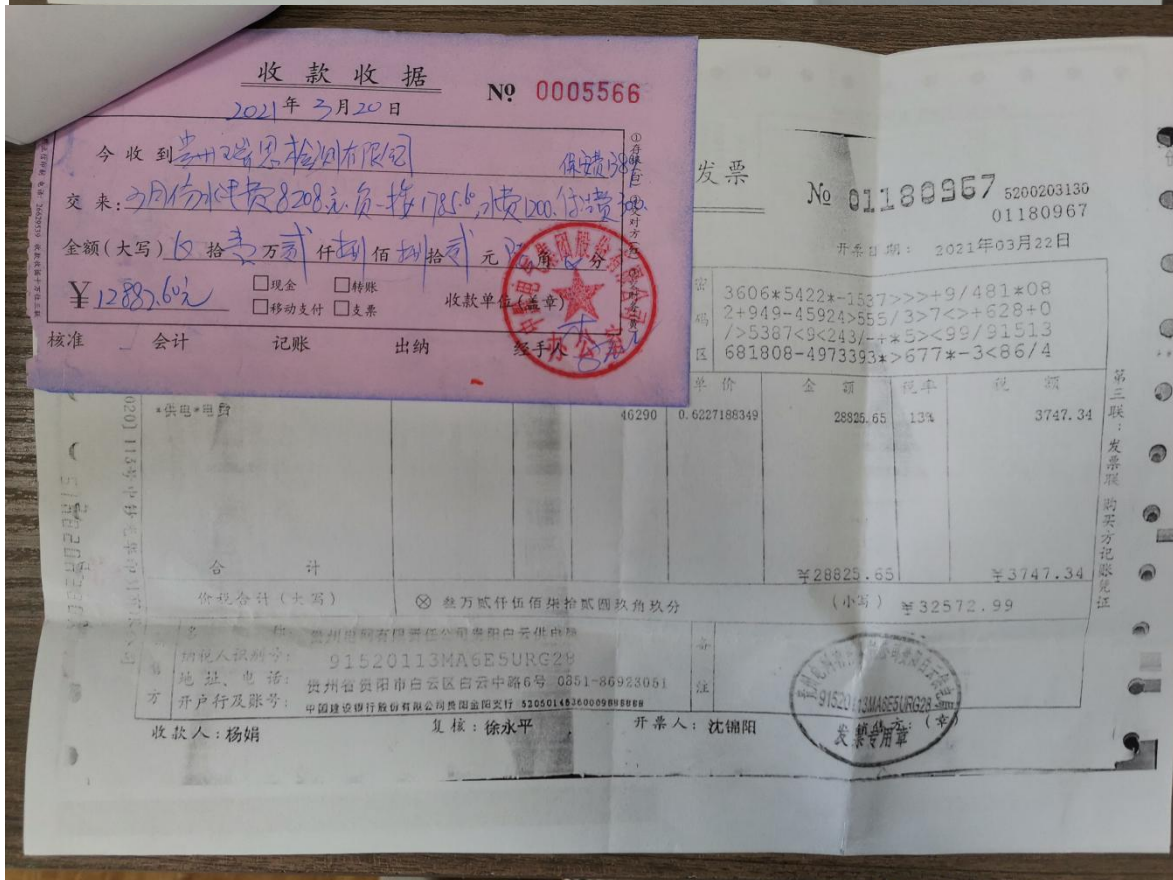 收款收据
№ 0005566
2021年3月20日
今收到 贵州瑞思检测有限公司
交来:3月份水电费8208元.
水费1200.
金额(大写) 拾壹万贰仟捌佰捌拾贰元 角 分
¥12882.60元
□现金 □转账
□移动支付 □支票
收款单位(盖章)
核准 会计 记账 出纳 经手人
办公室
发票
№ 01180967 5200203130
01180967
开票日期: 2021年03月22日
密码区
3606*5422*-1537>>>+9/481*08
2+949-45924>555/3>7<>+628+0
/>5387<9<243/-+*5><99/91513
681808-4973393*>677*-3<86/4
单价 金额 税率 税额
*供电*电费 46290 0.6227188349 28825.65 13% 3747.34
合计 ¥28825.65 ¥3747.34
价税合计(大写) ⊗ 叁万贰仟伍佰柒拾贰圆玖角玖分 (小写) ¥32572.99
纳税人识别号: 91520113MA6E5URG28
地址、电话: 贵州省贵阳市白云区白云中路6号 0851-86923051
开户行及账号: 中国建设银行股份有限公司贵阳金阳支行
备注
收款人:杨娟 复核:徐永平 开票人:沈锦阳
91520113MA6E5URG28
发票专用章
第三联:发票联 购买方记账凭证